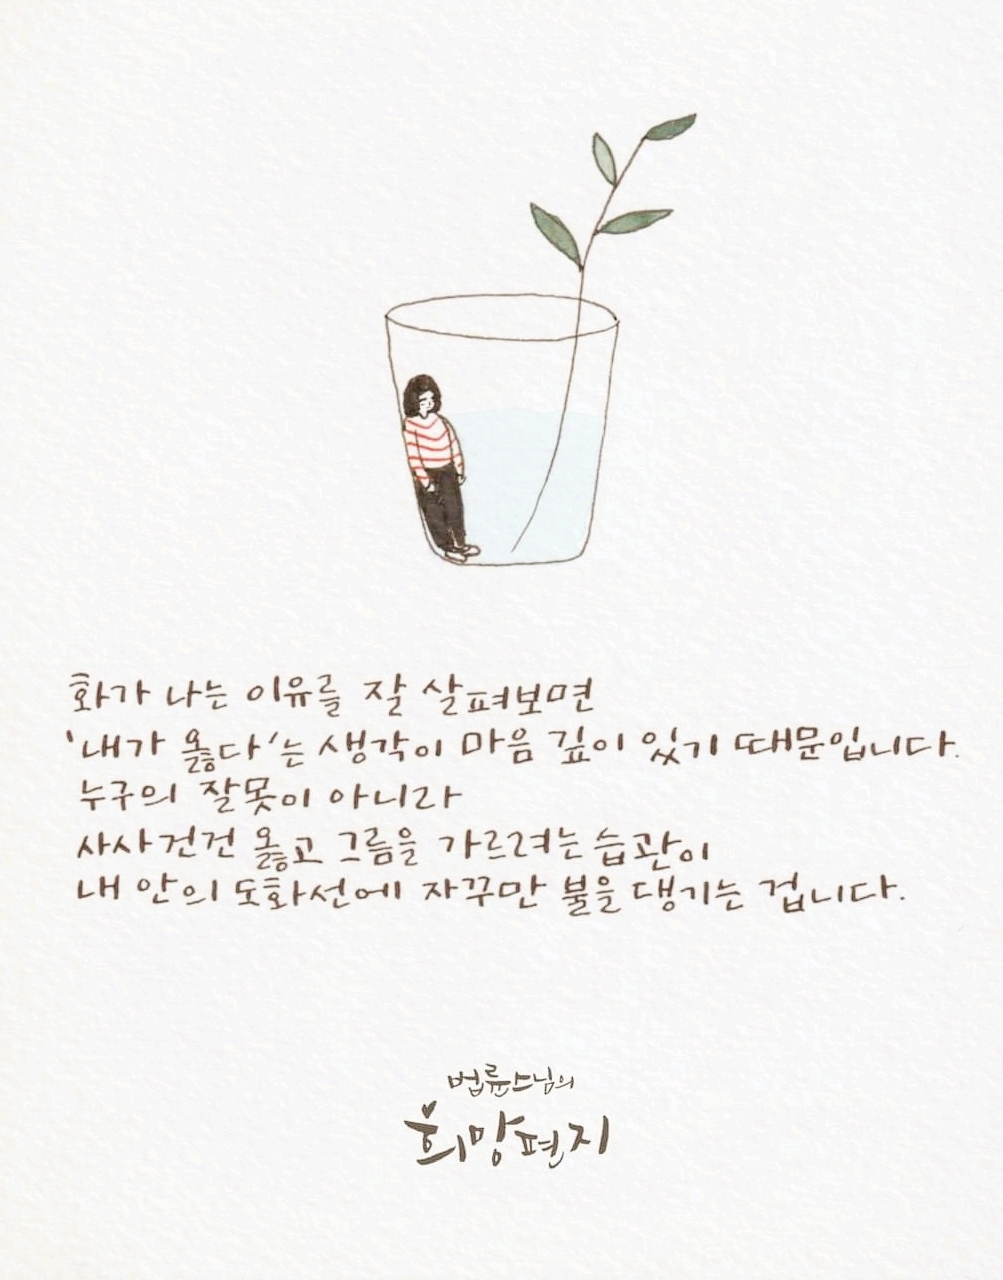 화가 나는 이유를 잘 살펴보면
'내가 옳다'는 생각이 마음 깊이 있기 때문입니다.
누구의 잘못이 아니라
사사건건 옳고 그름을 가르려는 습관이
내 안의 도화선에 자꾸만 불을 댕기는 겁니다.
법륜스님의
희망편지